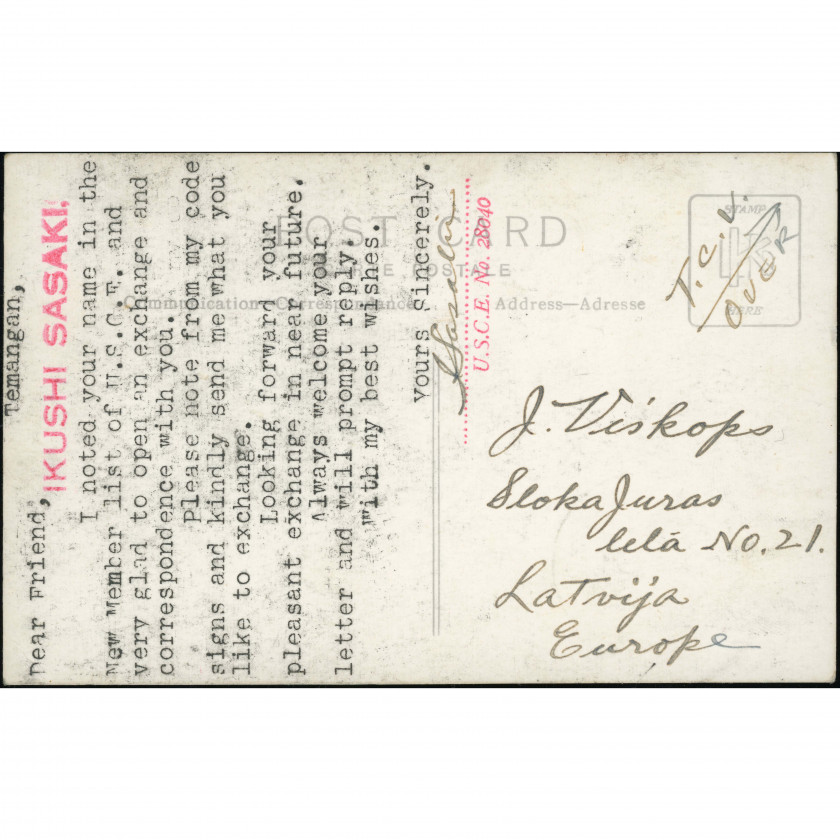 Temangan,
IKUSHI SASAKI.
Dear Friend,
I noted your name in the
New Member list of U.S.C.E. and
very glad to open an exchange and
correspondence with you.
Please note from my code
signs and kindly send me what you
like to exchange.
Looking forward your
pleasant exchange in near future.
Always welcome your
letter and will prompt reply.
With my best wishes.
Yours Sincerely.
U.S.C.E. No. 28040
POST CARD
CARTE POSTALE
Communication—Correspondance
Address—Adresse
STAMP
HERE
T.C.V.
OVER
J. Viskops
Sloka Juras
lelā No. 21.
Latvija
Europe